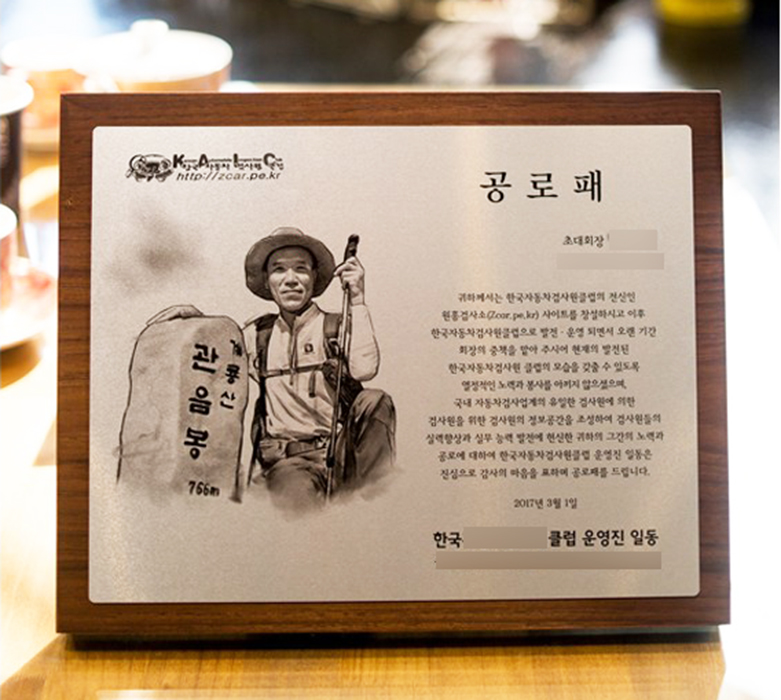 Korean Automobile Inspection Club
한국 자동차 검사원 클럽
http://zcar.pe.kr
공로패
초대회장
귀하께서는 한국자동차검사원클럽의 전신인
원흥검사소(Zcar.pe.kr) 사이트를 창설하시고 이후
한국자동차검사원클럽으로 발전·운영 되면서 오랜 기간
회장의 중책을 맡아 주시어 현재의 발전된
한국자동차검사원 클럽의 모습을 갖출 수 있도록
열정적인 노력과 봉사를 아끼지 않으셨으며,
국내 자동차검사업계의 유일한 검사원에 의한
검사원을 위한 검사원의 정보공간을 조성하여 검사원들의
실력향상과 실무 능력 발전에 헌신한 귀하의 그간의 노력과
공로에 대하여 한국자동차검사원클럽 운영진 일동은
진심으로 감사의 마음을 표하며 공로패를 드립니다.
2017년 3월 1일
한국 클럽 운영진 일동
계룡산
관음봉
766m